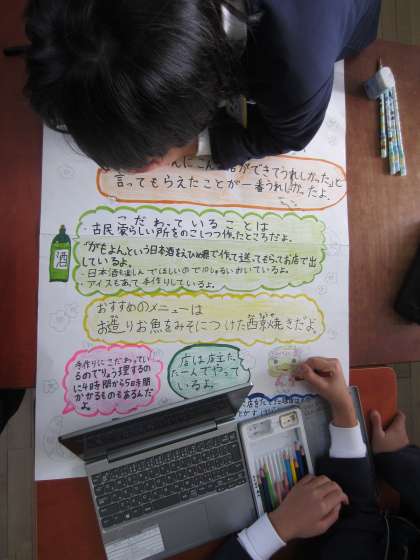 んにこん
ができてうれしかった」と
言ってもらえたことが一番うれしかったよ。
こだわっていることは
・古民家らしい所をのこしつつ作ったところだよ。
・「かもよん」という日本酒をえひめ県で作て送ってもらってお店で出
しているよ。
・日本酒を楽しんでほしいので10しゅるいおいているよ。
・アイスもあて手作りしているよ。
酒
おすすめのメニューは
お造りお魚をみそにつけた西京焼きだよ。
手作りにこだわってい
るのでりょう理するの
に4時間から5時間
かかるものもあるんだ
よ。
店は店主、
た一人でやって
いるよ。